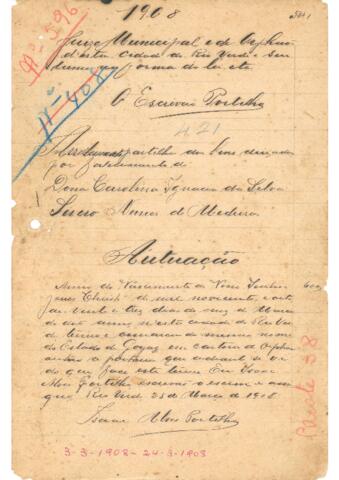 1908
Nº 596
Nº 408
Juizo Municipal e de Orphãos
desta Cidade do Rio Verde e seu
termo na forma da lei etc.
O Escrivão Portilho
421
partilha dos bens deixados
por fallecimento de
Dona Carolina Ignacia da Silva
Nunes de Medeiros
Autuação
Anno do Nascimento de Nosso Senhor
Jesus Christo de mil novecentos e oito
aos vinte e tres dias do mez de Março
do dito anno n'esta cidade do Rio Ver
de termo e comarca do mesmo nome
do Estado de Goyaz em cartorio de Orphãos
autuo a que adiante se vê
do que faço este termo Eu Isaac
Alves Portilho escrivão o escrevi e assi
gno. Rio Verde, 23 de Março de 1908.
Isaac Alves Portilho
3-3-1908-24-3-1908